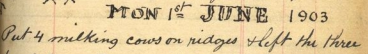 MON 1st JUNE 1903
Put 4 milking cows on ridges & left the three